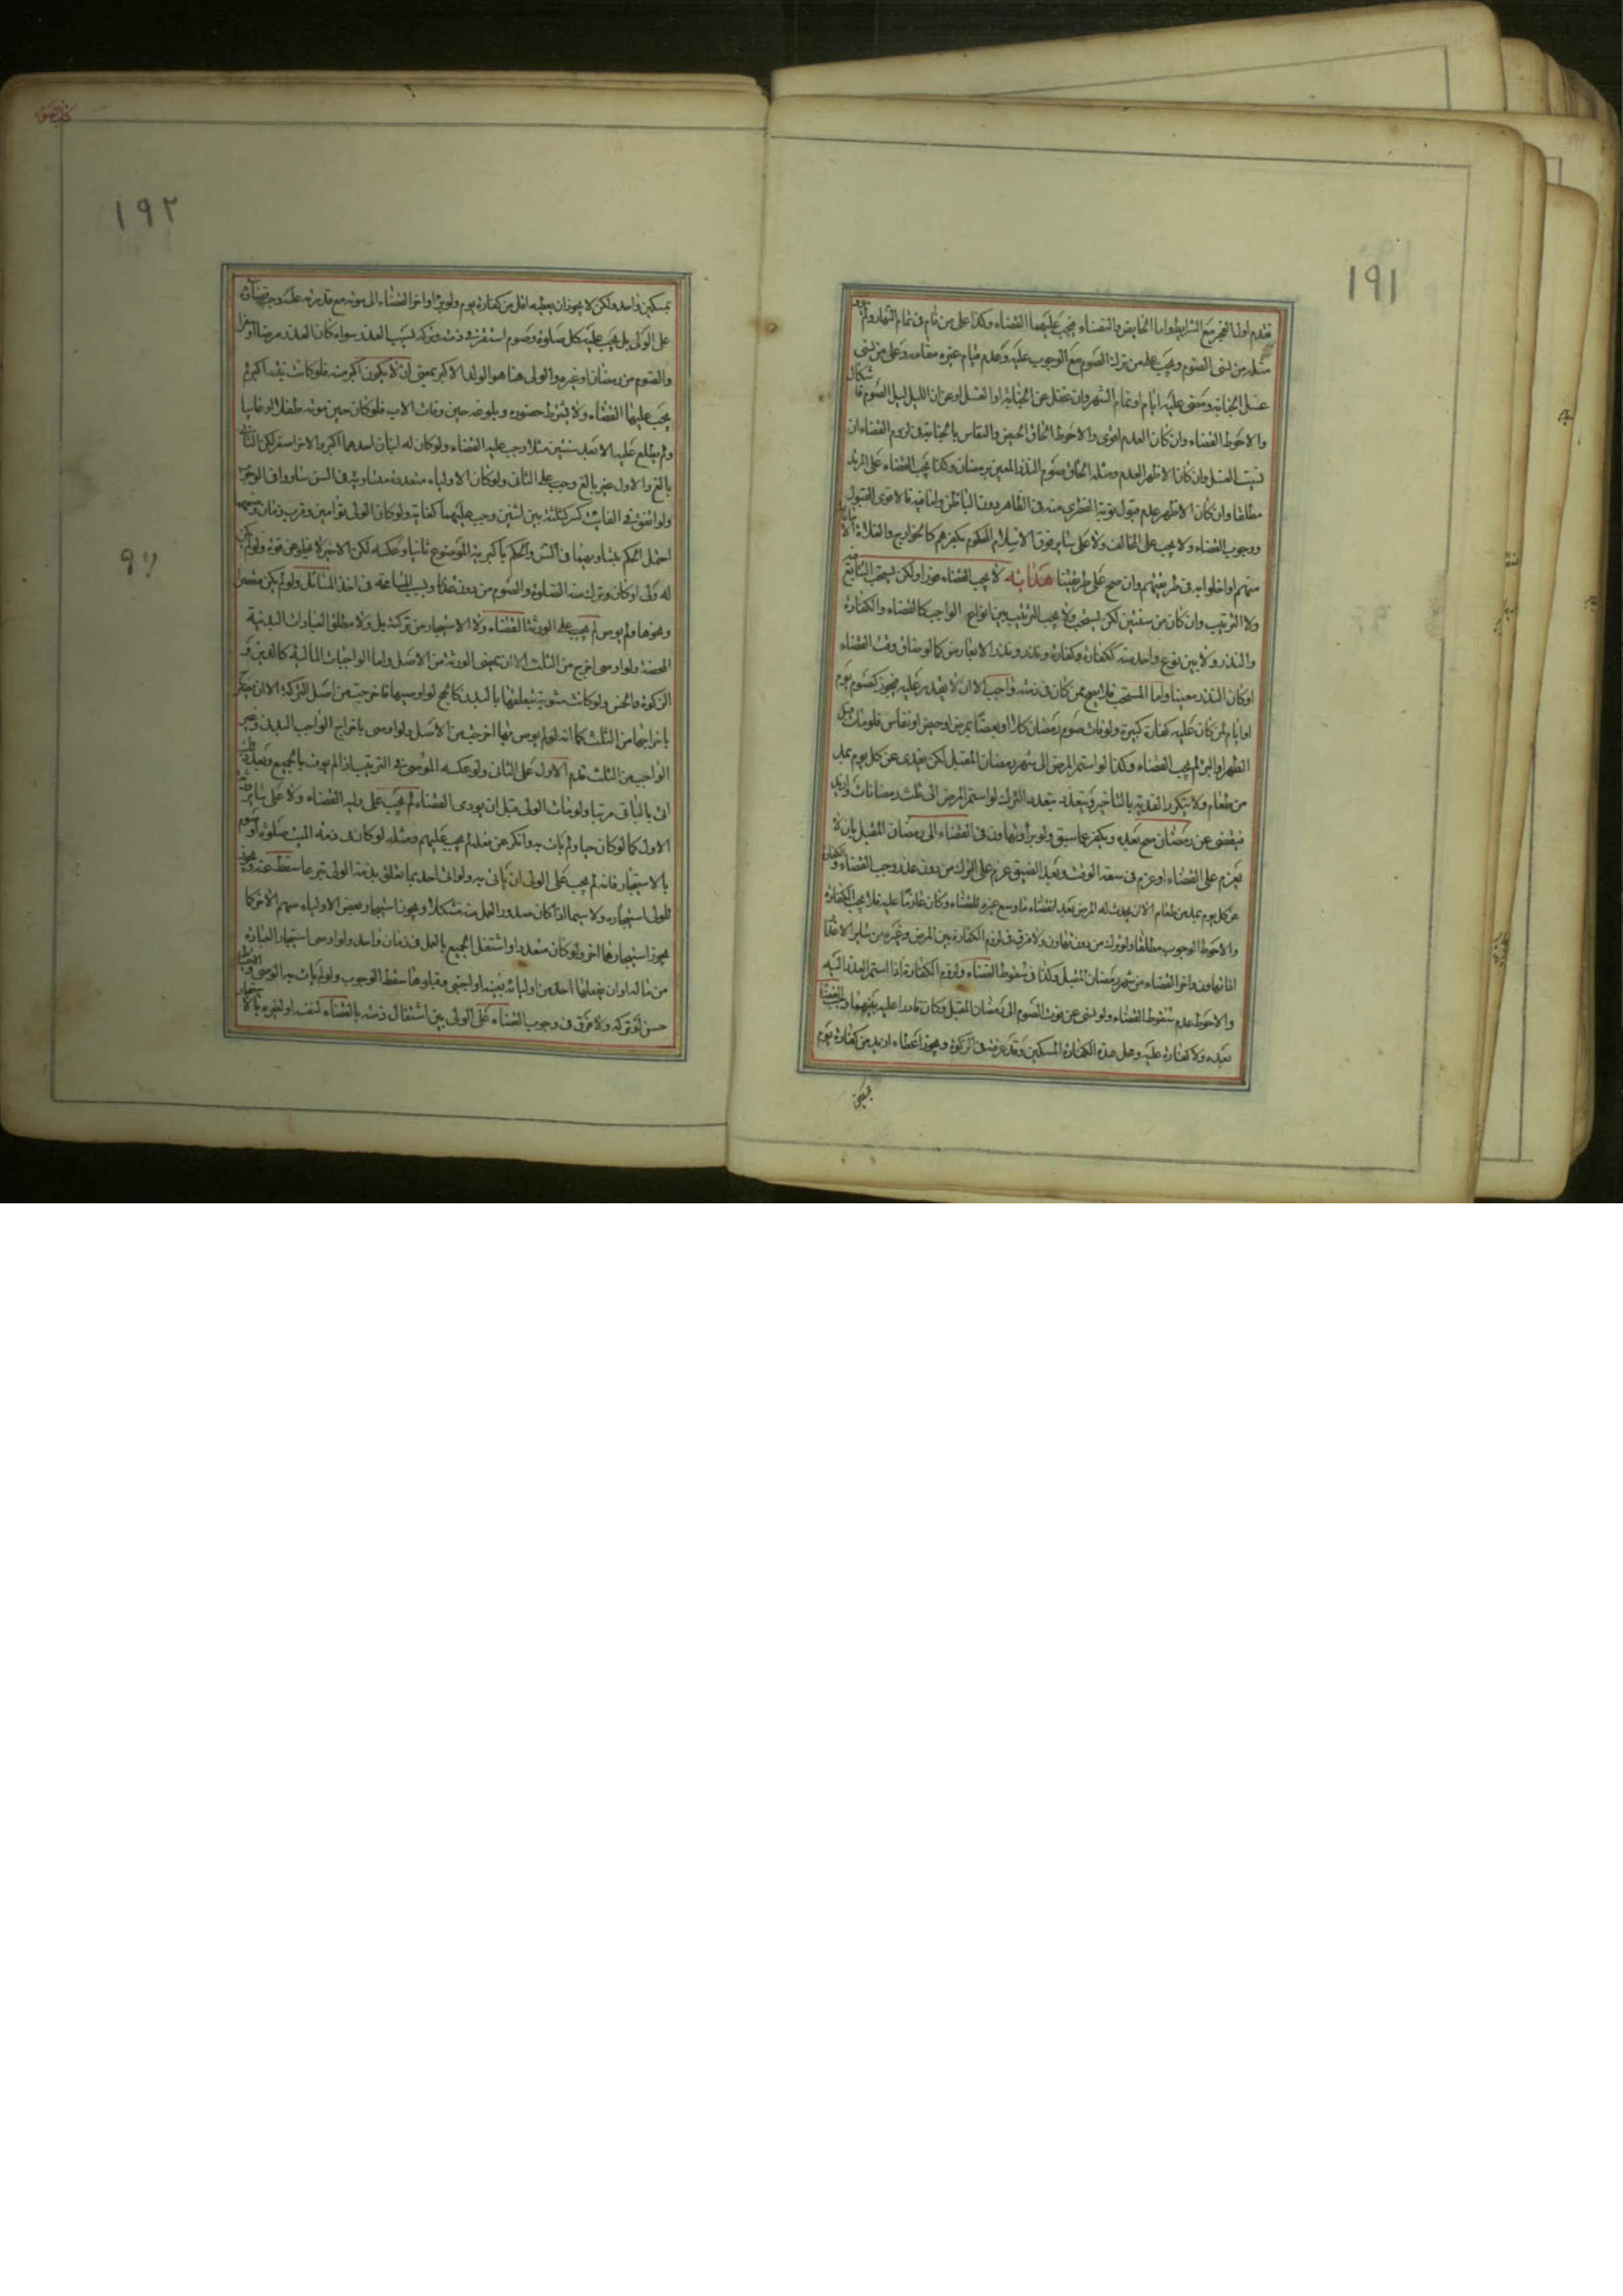 ١٩١
تقدم اول الفجر مع الشرايط واما الحايض والنفساء فيجب عليهما القضاء وكذا على من نام في تمام النهار ولم
مثله من نسى الصوم ويجب على من ترك الصوم مع الوجوب عليه وعدم قيام غيره مقامه وعلى من نسى
غسل الجنابة ومضى عليه ايام او تمام الشهر وان غفل عن الجنابة او الغسل او عن ان الليل ليل الصوم
والاحوط القضاء وان كان العدم اقوى والاحوط الحاق الحيض والنفاس بالجنابة في لزوم القضاء ان
نسيت الغسل وان كان الاظهر العدم ومثله الحاق صوم النذر المعين برمضان وكذا يجب القضاء على المرتد
مطلقا وان كان الاظهر عدم قبول توبة الفطري منه في الظاهر دون الباطن واما فيه فالاقوى القبول
ووجوب القضاء ولا يجب على المخالف ولا على ساير فرق الاسلام المحكوم بكفرهم كالخوارج والغلاة الا
منهم او اخلوا به في طريقتهم وان صح على طريقتنا هداية لا يجب القضاء فورا ولكن يستحب التتابع
ولا الترتيب وان كان من سنتين لكن يستحب ولا يجب الترتيب بين انواع الواجب كالقضاء والكفارة
والنذر ولا بين نوع واحد منه ككفارة وكفارة ونذر ونذر الا لعارض كما لو ضاق وقت القضاء
او كان النذر معينا واما المستحب فلا يصح ممن كان في ذمته واجب الا ان لا يقدر عليه فيجوز كصوم يوم
او ايام لمن كان عليه كفارة كبيرة ولو فات صوم رمضان كلا او بعضا بمرض او حيض او نفاس فلو مات قبل
الطهر او البرء لم يجب القضاء وكذا لو استمر المرض الى شهر رمضان المقبل لكن يفدى عن كل يوم بمد
من طعام ولا يتكرر الفدية بالتأخير ويتعدد بتعدد الترك لو استمر المرض الى ثلث رمضانات وازيد
فيقضى عن رمضان صح بعده ويكفر عما سبق ولو برأ وتهاون في القضاء الى رمضان المقبل بان لا
يعزم على القضاء او عزم في سعة الوقت وبعد الضيق عزم على الترك من دون عذر وجب القضاء والكفارة
عن كل يوم بمد من طعام الا ان يحدث له المرض بعد انقضاء ما وسع عزمه للقضاء وكان عازما عليه فلا يجب الكفارة
والاحوط الوجوب مطلقا ولو ترك من دون تهاون ولا فرق في لزوم الكفارة بين المرض وغيره من ساير الاعذار
اذا تهاون واخر القضاء من شهر رمضان المقبل وكذا في سقوط القضاء ولزوم الكفارة اذا استمر العذر اليه
والاحوط عدم سقوط القضاء ولو نسى عن فوت الصوم الى رمضان المقبل وكان قادرا عليه بينهما وجب القضاء
بعده ولا كفارة عليه ومحل هذه الكفارة المسكين وقد عرفته في الزكوة ويجوز اعطاء ازيد من كفارة يوم
١٩٢
لمسكين واحد ولكن لا يجوز ان يعطيه اقل من كفارة يوم ولو برأ واخر القضاء الى موته مع قدرته عليه وجب قضاؤه
على الولى بل يجب عليه كل صلوة وصوم استقر في ذمته وتركه لسبب العذر سواء كان العذر مرضا او سفرا
والصوم من رمضان او غيره والولى هنا هو الولد الاكبر بمعنى ان لا يكون اكبر منه فلو كانت بنته اكبر لم
يجب عليها القضاء ولا يشترط حضوره وبلوغه حين وفات الاب فلو كان حين موته طفلا او غايبا
ولم يطلع عليه الا بعد سنتين مثلا وجب عليه القضاء ولو كان له ابنان احدهما اكبر والاخر اصغر لكن الثانى
بالغ والاول غير بالغ وجب على الثانى ولو كان الاولياء متعددة متساوية في السن تساووا في الوجوب
ولو اتفق في الفايت كسر كثلثة بين اثنين وجب عليهما كفاية ولو كان الولى توأمين وقرب زمان وضعهما
احتمل الحكم بتساويهما في السن والحكم باكبرية الموضوع ثانيا وعكسه لكن الاخير لا يخلو عن قوة ولو لم يكن
له ولى او كان وترك منه الصلوة والصوم من دون عذر او بسبب المسامحة في اخذ المسائل ولو لم يكن مقصرا
ونحوها ولم يوص لم يجب على الورثة القضاء ولا الاستيجار من تركته بل ولا مطلق العبادات البدنية
المحضة ولو اوصى اخرج من الثلث الا ان يمضى الورثة من الاصل واما الواجبات المالية كالدين و
الزكوة والخمس ولو كانت مشوبة بتعلقها بالبدن كالحج لو اوصى بها فاخرجت من اصل التركة الا ان يصرح
باخراجها من الثلث كما انه لو لم يوص بها اخرجت من الاصل ولو اوصى باخراج الواجب البدنى وغير
الواجب من الثلث قدم الاول على الثانى ولو عكسه الموصى في الترتيب اذا لم يوف بالجميع
اتى بالباقى مرتبا ولو مات الولى قبل ان يودى القضاء لم يجب على وليه القضاء ولا على ساير
الاول كما لو كان حيا ولم يات به وانكر عن فعله لم يجب عليهم ومثله لو كان في ذمة الميت صلوة او صوم
بالاستيجار فانه لم يجب على الولى ان ياتى به ولو اتى احد بما تعلق بذمة الولى تبرعا سقط عنه ويجوز
للولى استيجاره ولا سيما اذا كان صدور العمل منه مشكلا ويجوز استيجار بعض الاولياء سهم الاخر كما
يجوز استيجارها اخر ولو كان متعددا واشتغل الجميع بالعمل في زمان واحد ولو اوصى استيجار العبادة
من ماله او ان يفعلها احد من اوليائه بعينه او اجنبى وقبلوها سقط الوجوب ولو لم يات به الوصى
حسن لو تركه ولا فرق في وجوب القضاء على الولى بين اشتغال ذمته بالقضاء لنفسه او لغيره بالا